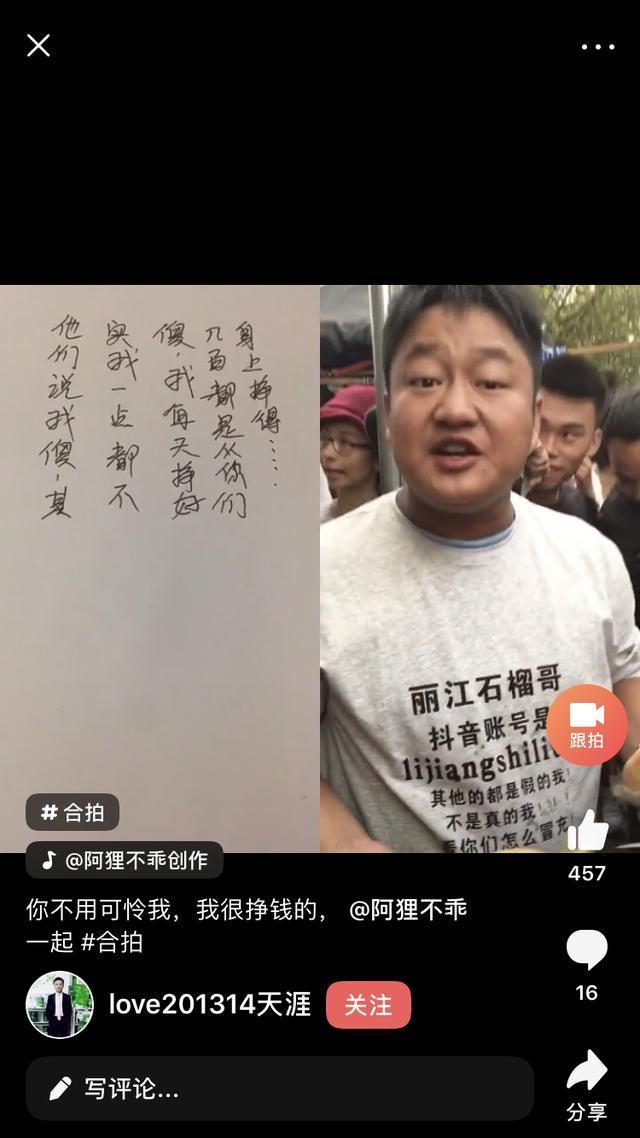 他们说我傻，其
实我一点都不
傻，我每天挣好
几百都是从你们
身上挣得……
丽江石榴哥
抖音账号是
lijiangshili
其他的都是假的我！
不是真的我！！！
看你们怎么冒充
跟拍
#合拍
@阿狸不乖创作
457
你不用可怜我，我很挣钱的， @阿狸不乖
一起 #合拍
16
love201314天涯
关注
写评论...
分享